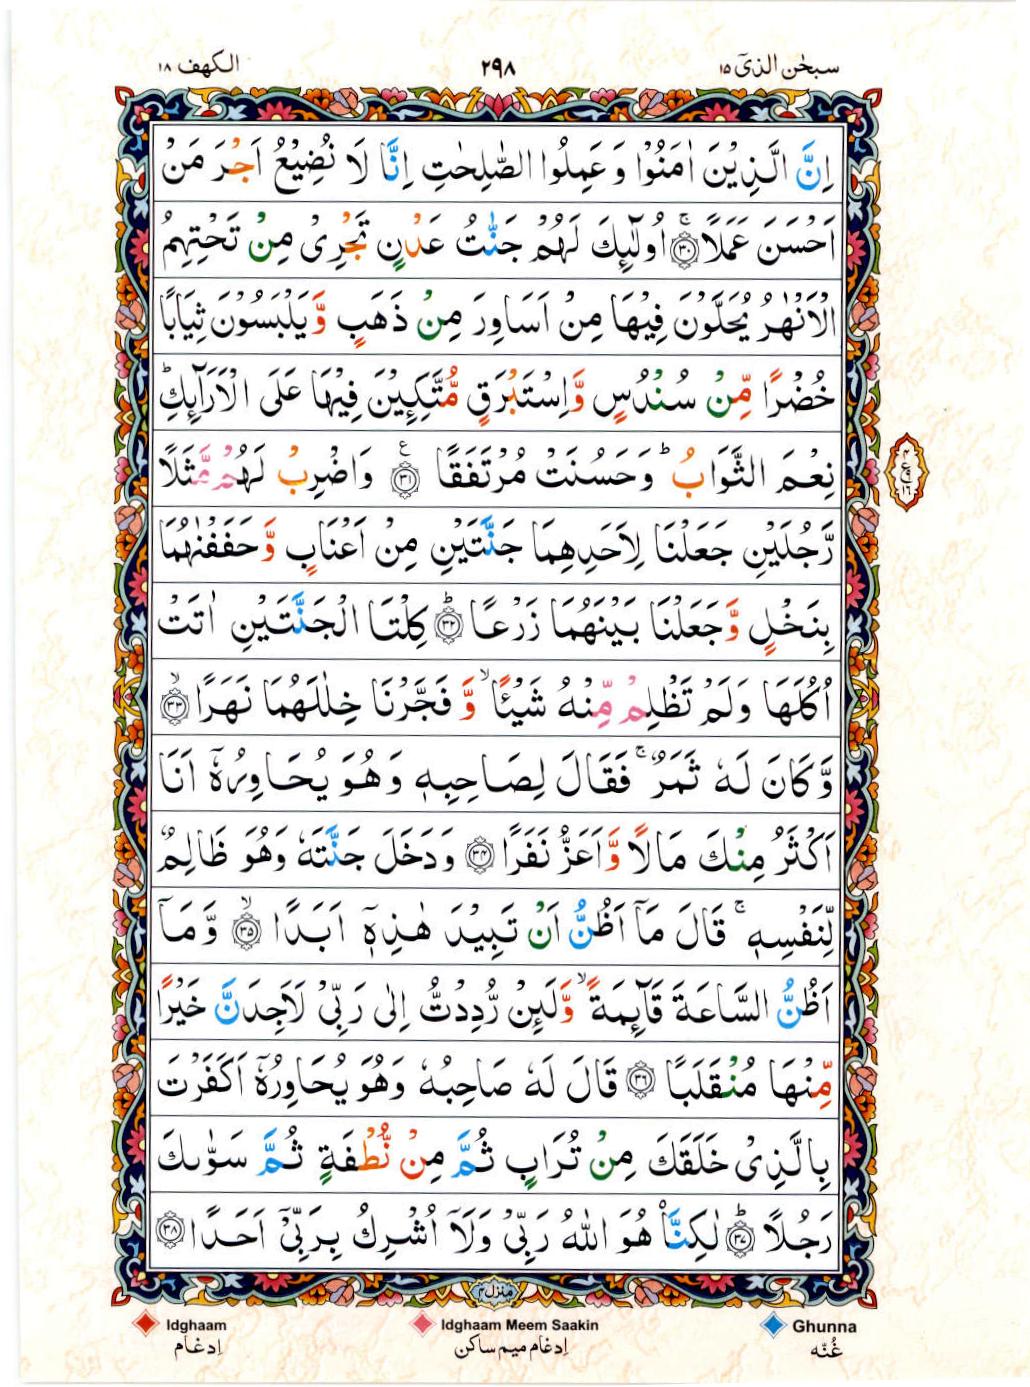 سبحٰن الذیٓ ۱۵
۲۹۸
الكهف ۱۸
اِنَّ الَّذِيْنَ اٰمَنُوْا وَ عَمِلُوا الصّٰلِحٰتِ اِنَّا لَا نُضِيْعُ اَجْرَ مَنْ
اَحْسَنَ عَمَلًا ۚ‏﴿۳۰﴾ اُولٰٓئِكَ لَهُمْ جَنّٰتُ عَدْنٍ تَجْرِیْ مِنْ تَحْتِهِمُ
الْاَنْهٰرُ يُحَلَّوْنَ فِيْهَا مِنْ اَسَاوِرَ مِنْ ذَهَبٍ وَّ يَلْبَسُوْنَ ثِيَابًا
خُضْرًا مِّنْ سُنْدُسٍ وَّ اِسْتَبْرَقٍ مُّتَّكِـِٕيْنَ فِيْهَا عَلَی الْاَرَآئِكِ ؕ
نِعْمَ الثَّوَابُ ؕ وَ حَسُنَتْ مُرْتَفَقًا ﴿۳۱﴾ ع وَ اضْرِبْ لَهُمْ مَّثَلًا
رَّجُلَيْنِ جَعَلْنَا لِاَحَدِهِمَا جَنَّتَيْنِ مِنْ اَعْنَابٍ وَّ حَفَفْنٰهُمَا
بِنَخْلٍ وَّ جَعَلْنَا بَيْنَهُمَا زَرْعًا ؕ‏﴿۳۲﴾ كِلْتَا الْجَنَّتَيْنِ اٰتَتْ
اُكُلَهَا وَ لَمْ تَظْلِمْ مِّنْهُ شَيْـًٔا ۙ وَّ فَجَّرْنَا خِلٰلَهُمَا نَهَرًا ۙ‏﴿۳۳﴾
وَّ كَانَ لَهٗ ثَمَرٌ ۚ فَقَالَ لِصَاحِبِهٖ وَ هُوَ يُحَاوِرُهٗۤ اَنَا
اَكْثَرُ مِنْكَ مَالًا وَّ اَعَزُّ نَفَرًا ﴿۳۴﴾ وَ دَخَلَ جَنَّتَهٗ وَ هُوَ ظَالِمٌ
لِّنَفْسِهٖ ۚ قَالَ مَاۤ اَظُنُّ اَنْ تَبِيْدَ هٰذِهٖۤ اَبَدًا ۙ‏﴿۳۵﴾ وَّ مَاۤ
اَظُنُّ السَّاعَةَ قَآئِمَةً ۙ وَّ لَئِنْ رُّدِدْتُّ اِلٰی رَبِّیْ لَاَجِدَنَّ خَيْرًا
مِّنْهَا مُنْقَلَبًا ﴿۳۶﴾ قَالَ لَهٗ صَاحِبُهٗ وَ هُوَ يُحَاوِرُهٗۤ اَكَفَرْتَ
بِالَّذِیْ خَلَقَكَ مِنْ تُرَابٍ ثُمَّ مِنْ نُّطْفَةٍ ثُمَّ سَوّٰىكَ
رَجُلًا ؕ‏﴿۳۷﴾ لٰكِنَّا۠ هُوَ اللّٰهُ رَبِّیْ وَ لَاۤ اُشْرِكُ بِرَبِّیْۤ اَحَدًا ﴿۳۸﴾
منزل ۴
Ghunna
Idghaam Meem Saakin
Idghaam
غُنّه
اِدغام میم ساکن
اِدغام